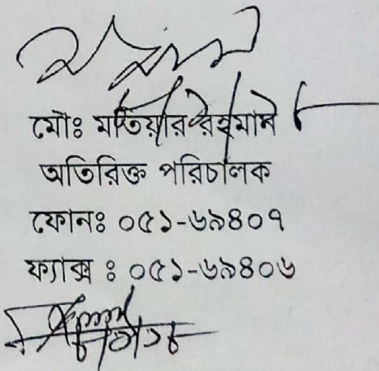 মোঃ মতিয়ার রহমান
অতিরিক্ত পরিচালক
ফোনঃ ০৫১-৬৯৪০৭
ফ্যাক্স : ০৫১-৬৯৪০৬